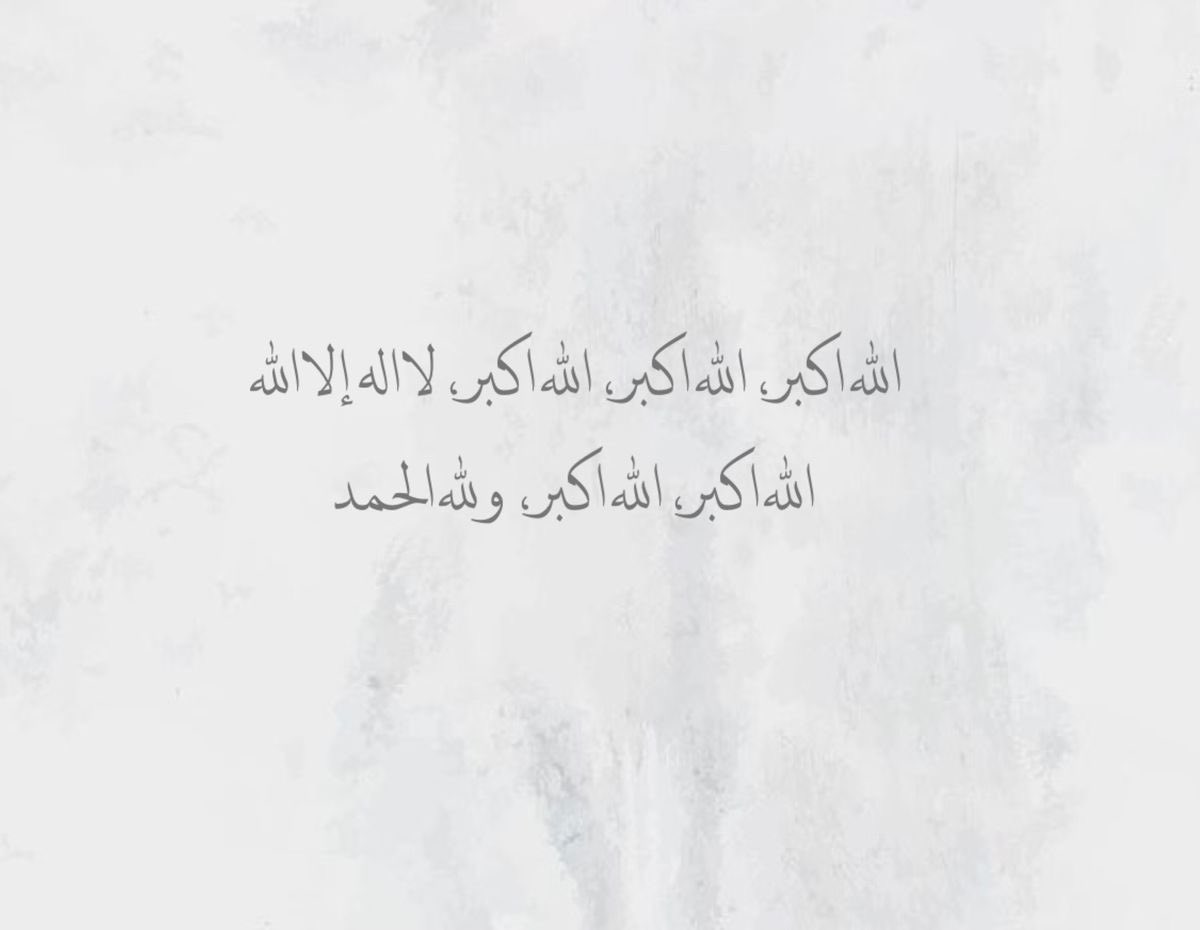 الله اكبر، الله اكبر، الله اكبر، لا اله إلا الله
الله اكبر، الله اكبر، ولله الحمد